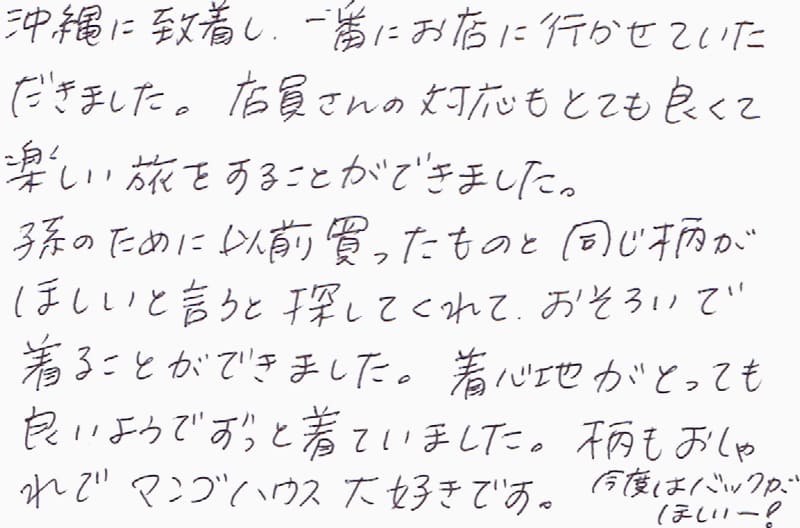 沖縄に致着し、一番にお店に行かせていた
だきました。店員さんの対応もとても良くて
楽しい旅をすることができました。
孫のために以前買ったものと同じ柄が
ほしいと言うと探してくれて、おそろいで
着ることができました。着心地がとっても
良いようでずっと着ていました。柄もおしゃ
れでマンゴハウス大好きです。
今度はバックが
ほしいー!